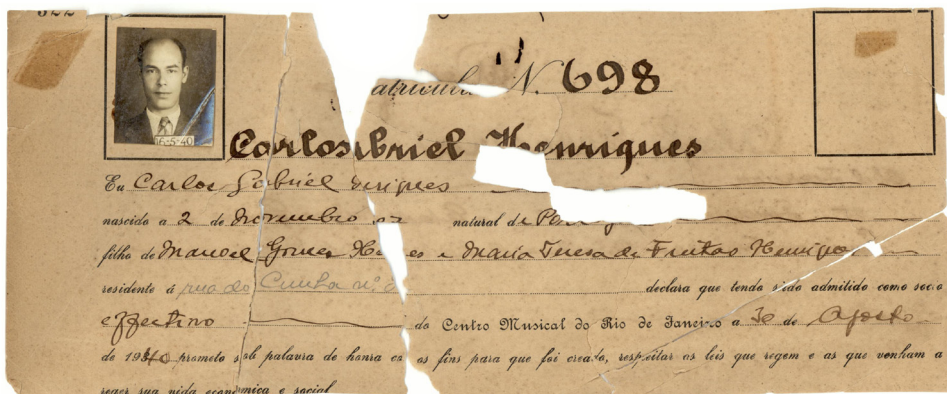 522
atricula N. 698
16-5-40
Carlos briel Henriques
Eu Carlos Gabriel
nascido a 2 de Novembro natural de
filho de Manoel Gomes He es e Maria Teresa de Freitas Henriques
residente á rua do Cunha nº declara que tendo sido admitido como socio
effectivo do Centro Musical do Rio de Janeiro a 30 de Agosto
de 1940 prometo sob palavra de honra os fins para que foi creado, respeitar as leis que regem e as que venham a
reger sua vida economica e social